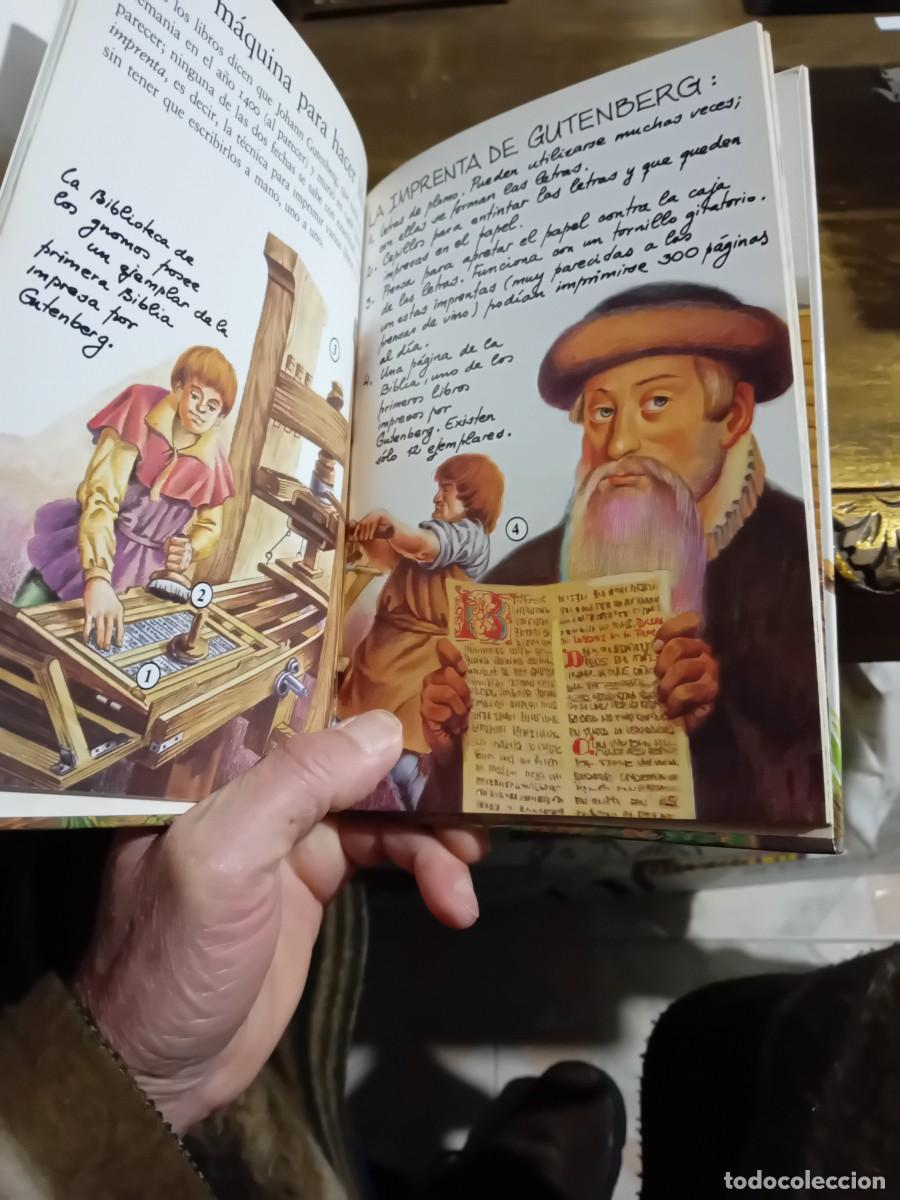 máquina para hacer
los libros dicen que Johann Gutenberg
emania en el año 1400 (al parecer) y murió en
parecer; ninguna de las dos fechas se sabe con
imprenta, es decir, la técnica para imprimir varios
sin tener que escribirlos a mano, uno a uno.
La Biblioteca de
los gnomos posee
un ejemplar de la
primera Biblia
impresa por
Gutenberg.
3
2
1
LA IMPRENTA DE GUTENBERG:
1. Letras de plomo. Pueden utilizarse muchas veces;
con ellas se forman las letras.
2. Cepillos para entintar las letras y que queden
impresas en el papel.
3. Prensa para apretar el papel contra la caja
de las letras. Funciona con un tornillo giratorio.
estas imprentas (muy parecidas a las
prensas de vino) podían imprimirse 300 páginas
al día.
4. Una página de la
Biblia, uno de los
primeros libros
impresos por
Gutenberg. Existen
sólo 12 ejemplares.
4
todocoleccion